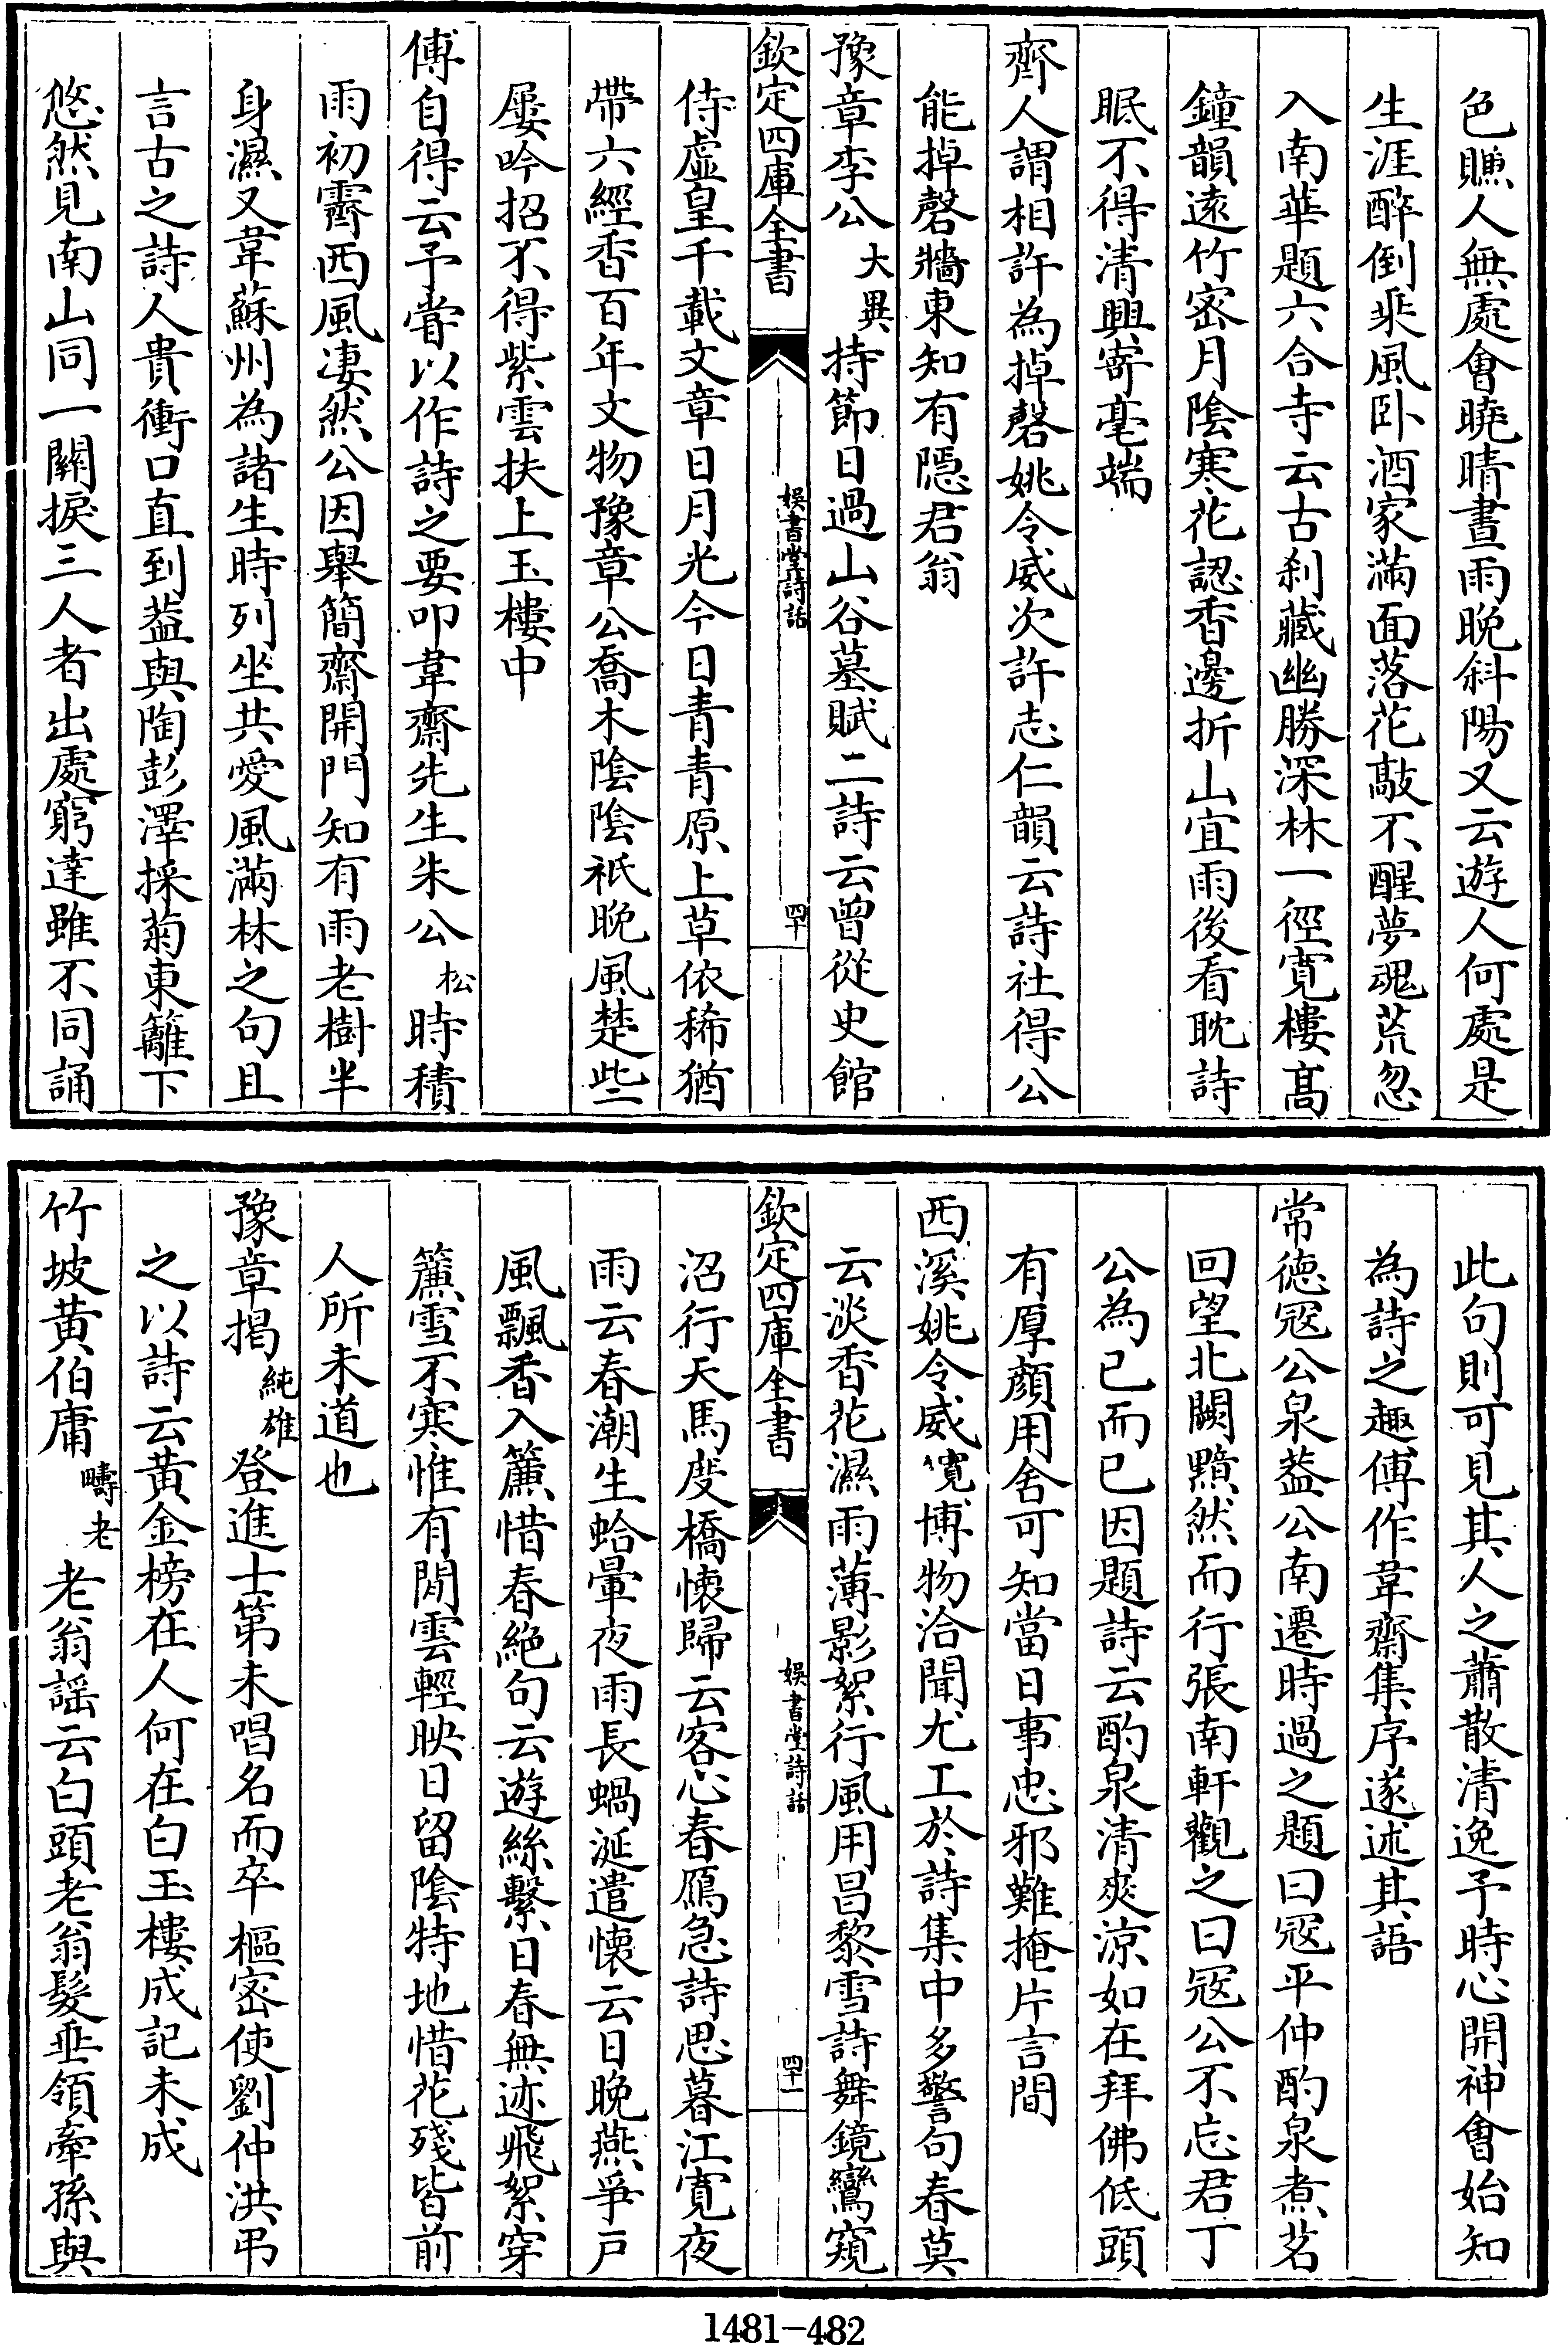 色賺人無處會曉晴晝雨晚斜陽又云遊人何處是
生涯醉倒乘風卧酒家滿面落花敲不醒夢魂荒忽
入南華題六合寺云古刹藏幽勝深林一徑寛樓高
鐘韻遠竹宻月陰寒花認香邊折山宜雨後看耽詩
眠不得清興寄毫端
齊人謂相許為掉磬姚令威次許志仁韻云詩社得公
能掉磬牆東知有隠君翁
豫章李公大異持節日過山谷墓賦二詩云曾從史館
欽定四庫全書
娯書堂詩話
四十
侍虚皇千載文章日月光今日青青原上草依稀猶
帶六經香百年文物豫章公喬木陰陰祇晚風楚些
屢吟招不得紫雲扶上玉樓中
傅自得云予嘗以作詩之要叩韋齋先生朱公松時積
雨初霽西風凄然公因舉簡齋開門知有雨老樹半
身濕又韋蘇州為諸生時列坐共愛風滿林之句且
言古之詩人貴衝口直到葢與陶彭澤採菊東籬下
悠然見南山同一關捩三人者出處窮達雖不同誦
此句則可見其人之蕭散清逸予時心開神會始知
為詩之趣傅作韋齋集序遂述其語
常徳冦公泉葢公南遷時過之題曰冦平仲酌泉煮茗
回望北闕黯然而行張南軒觀之曰冦公不忘君丁
公為已而已因題詩云酌泉清爽涼如在拜佛低頭
有厚顔用舍可知當日事忠邪難掩片言間
西溪姚令威寛博物洽聞尤工於詩集中多警句春莫
云淡香花濕雨薄影絮行風用昌黎雪詩舞鏡鸞窺
欽定四庫全書
娯書堂詩話
四十一
沼行天馬度橋懐歸云客心春鴈急詩思暮江寛夜
雨云春潮生蛤暈夜雨長蝸涎遣懐云日晚燕爭戸
風飄香入簾惜春絶句云遊絲繫日春無迹飛絮穿
簾雪不寒惟有閒雲輕映日留陰特地惜花殘皆前
人所未道也
豫章揭純雄登進士第未唱名而卒樞密使劉仲洪弔
之以詩云黄金榜在人何在白玉樓成記未成
竹坡黄伯庸疇老老翁謡云白頭老翁髮垂領牽孫與
1481-482